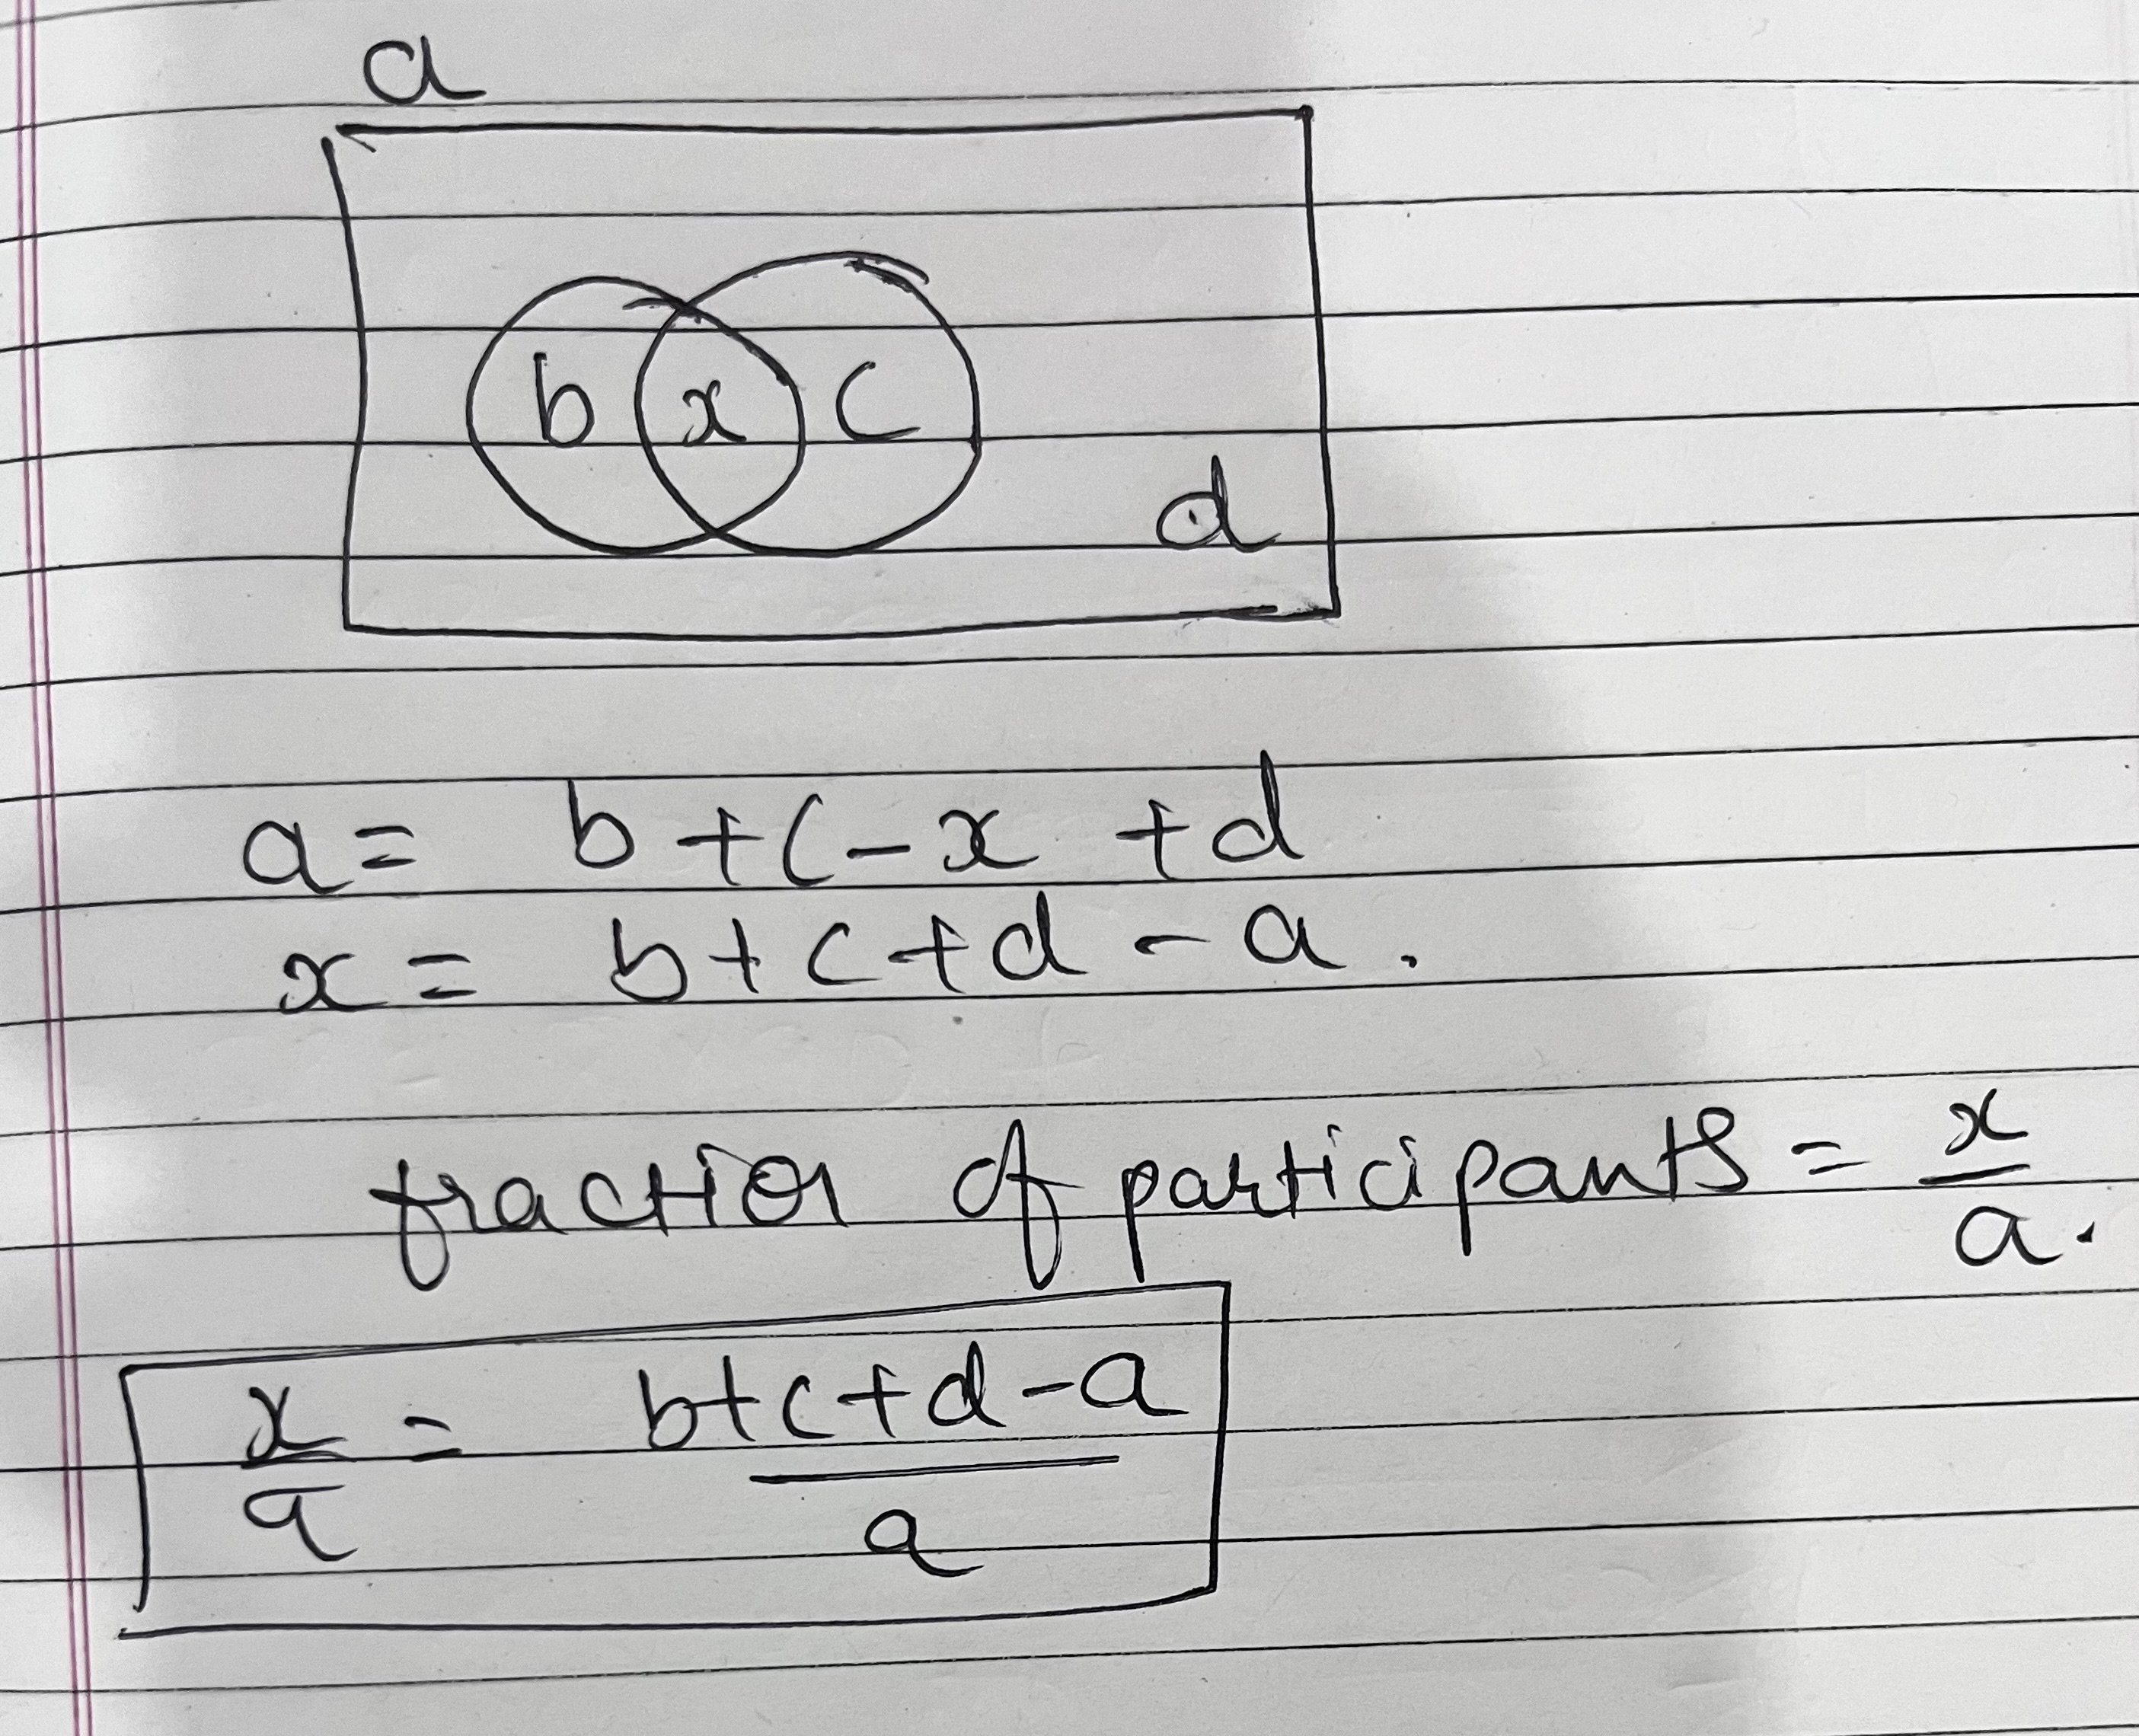 a
b x c
d
a = b + c - x + d
x = b + c + d - a .
fraction of participants = x/a .
x/a = b+c+d-a/a